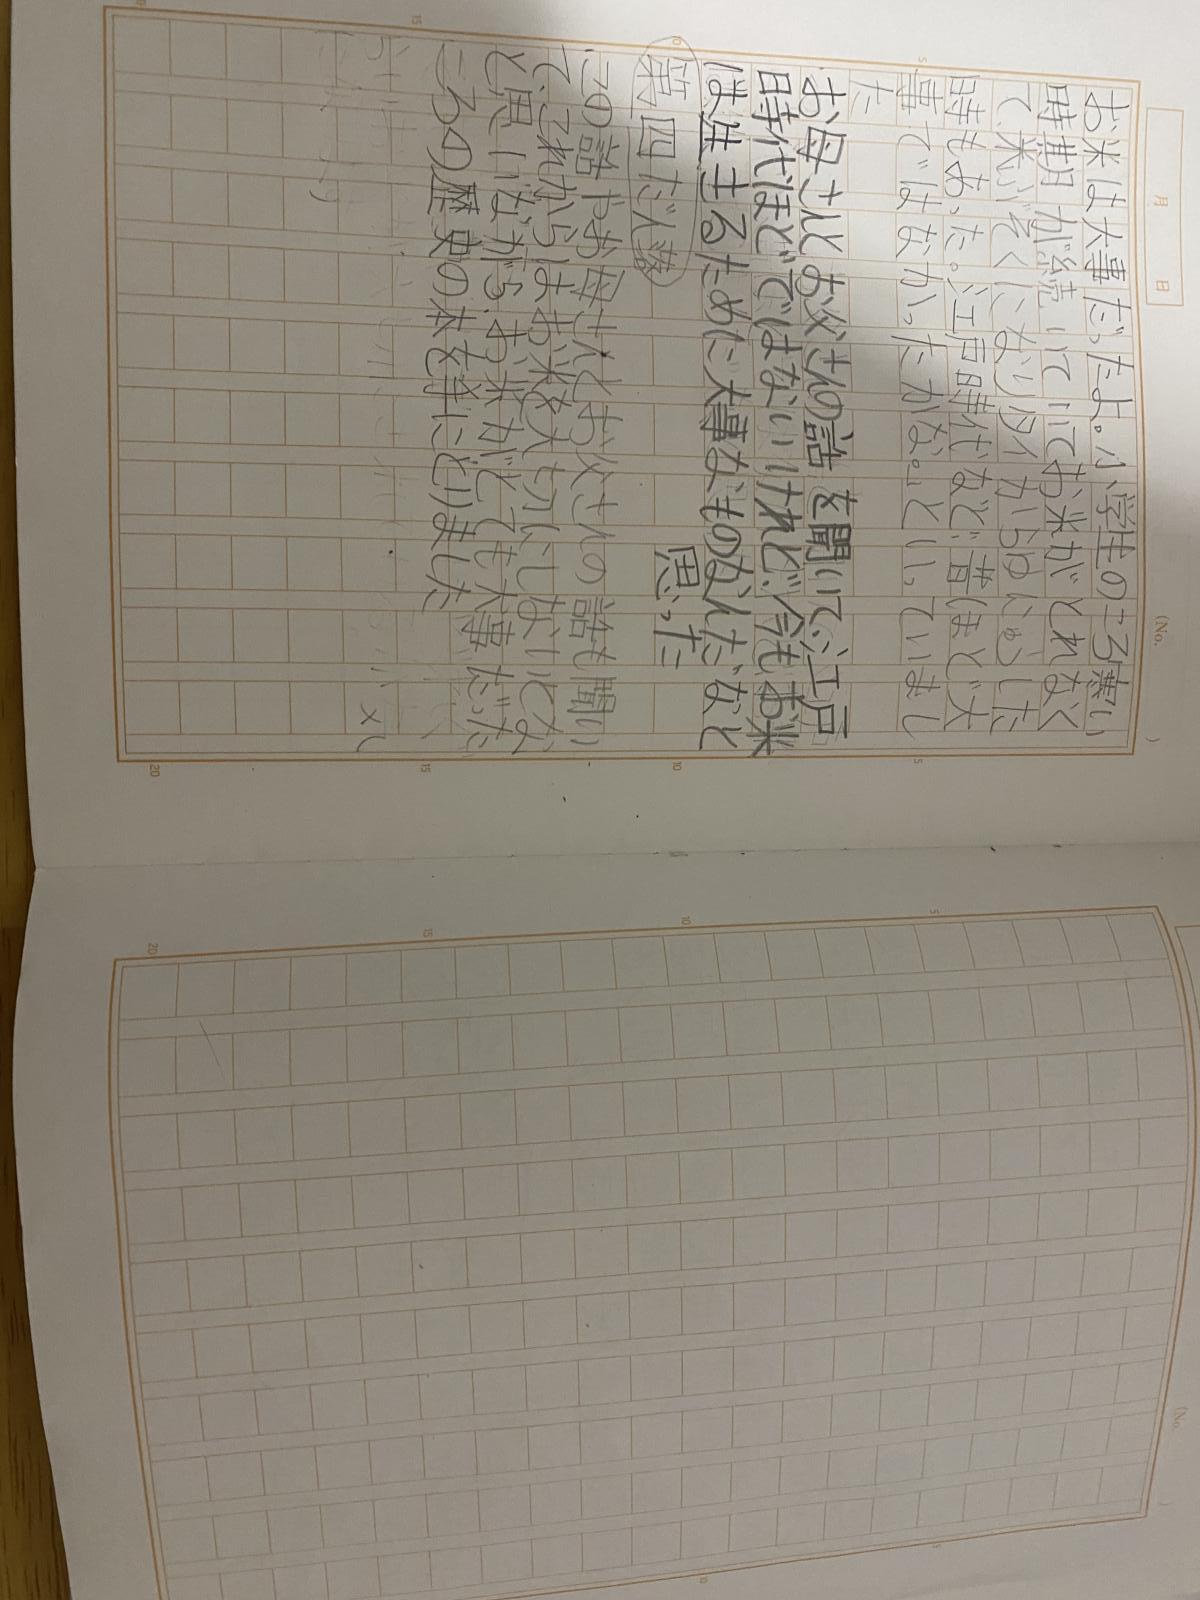 月 日
(No. )
お米は大事だったよ。小学生のころ寒い
時期が続いていてお米がとれなく
て、米ぶそくになりタイからゆにゅうした
時もあった。江戸時代など昔ほど大
事ではなかったかな。」といっていまし
た
お母さんとお父さんの話を聞いて、江戸
時代ほどではないけれど、今もお米
は生きるために大事なものなんだなと
思った
第四だん落
この話やお母さんとお父さんの話も聞い
て、これからはお米を大切にしないとな
と思いながら、お米がとても大事だった
ころの歴史の本を手にとりました
5
10
15
20
5
10
15
20
(No. )
5
10
15
20
5
10